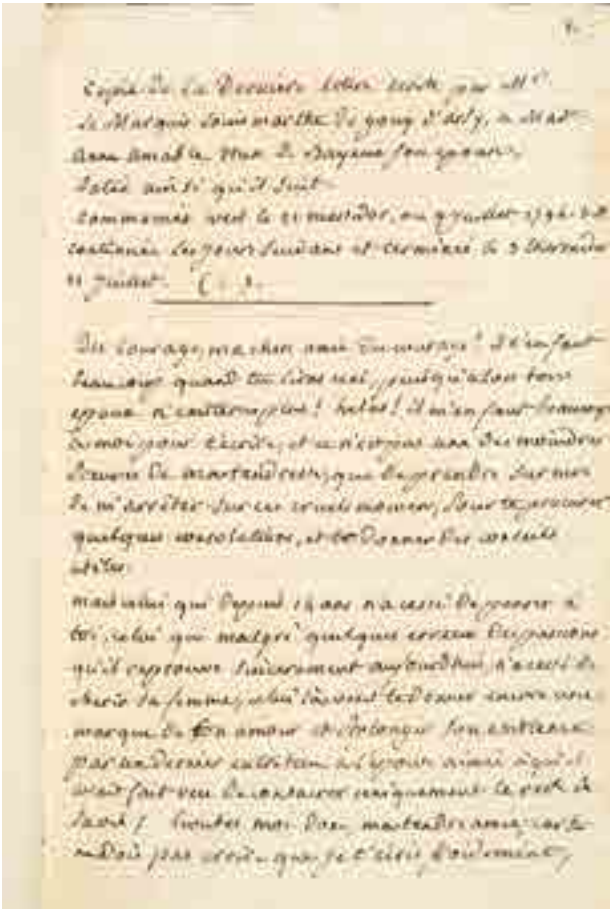 Copie de la Derniere lettre écrite par Mr.
Le Marquis Louis marthe de gouy d'arsy, a Mad.
anne amable hux de Bayeux son epouse,
datée ainsi qu'il suit
commencée vers le 21 messidor, ou 9 juillet 1794
continuée les jours suivant et terminée le 3 thermidor
21 juillet.
Du courage, ma chere amie du courage! il t'en faut
beaucoup quand tu liras ceci, puisqu'alors ton
epoux n'existera plus! helas! il m'en faut beaucoup
a moi pour t'écrire, et ce n'est pas une des moindres
preuves de ma tendresse, que de prendre sur moi
de m'arrêter sur ces cruels momens, pour te procurer
quelques consolations, et te donner des conseils
utiles.
mais celui qui depuis 14 ans n'a cessé de penser à
toi, celui qui malgré quelques erreurs des passions
qu'il reprouve sincerement aujourdhui, n'a cessé de
cherir sa femme, celui là veut te donner encore une
marque de son amour et prolonger son existence
par un dernier entretien a l'epouse aimée à qui il
avait fait voeu de consacrer uniquement le reste de
sa vie! écoutes moi donc ma tendre amie, car tu
ne dois pas croire que je t'écris froidement,